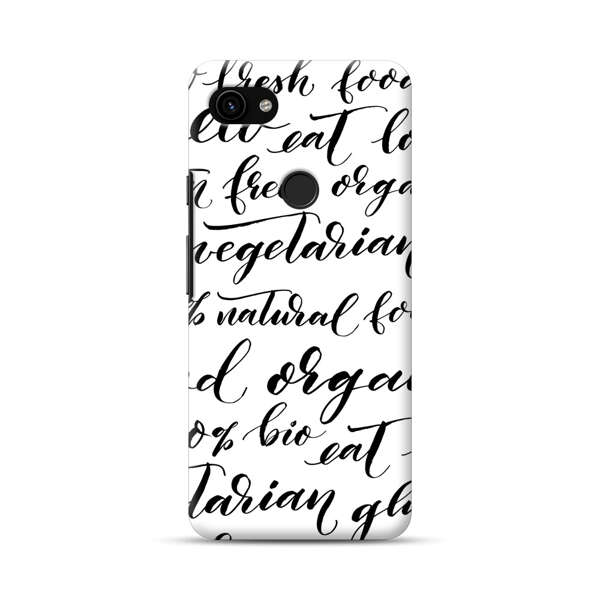 fresh food
eat
free orga
vegetarian
% natural fo
d orga
0% bio eat
tarian glu